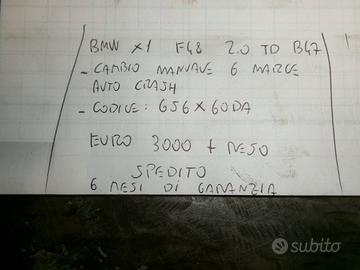 BMW X1 F48 2.0 TD B47
- CAMBIO MANUALE 6 MARCE
AUTO CRASH
- CODICE: GS6X60DA
EURO 3000 + RESO
SPEDITO
6 MESI DI GARANZIA
subito